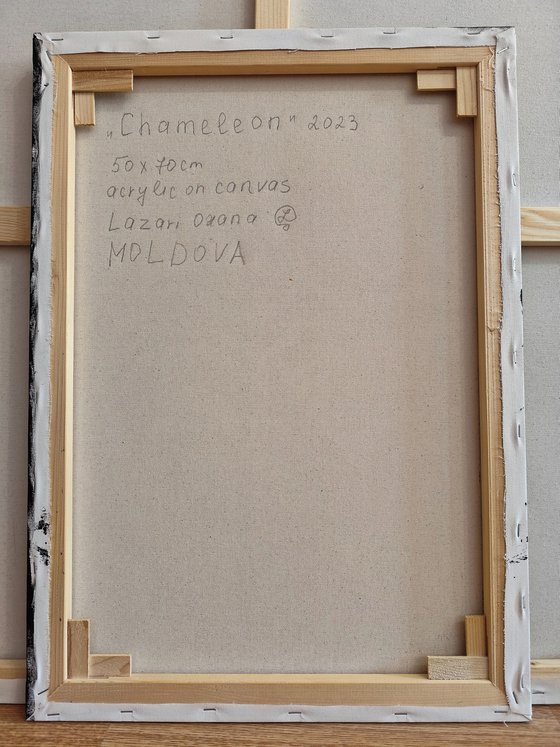 „Chameleon" 2023
50 x 70 cm
acrylic on canvas
Lazari Oxana
MOLDOVA